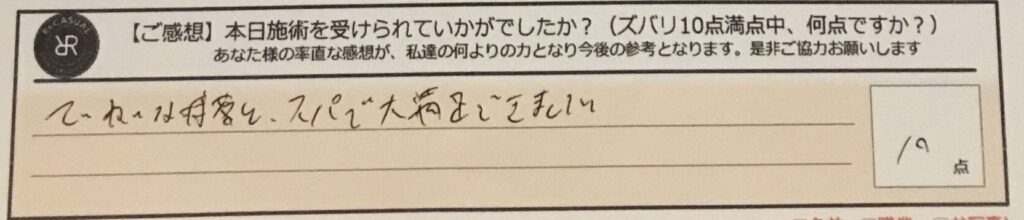 RECASUAL
RR
【ご感想】本日施術を受けられていかがでしたか?(ズバリ10点満点中、何点ですか?)
あなた様の率直な感想が、私達の何よりの力となり今後の参考となります。是非ご協力お願いします
ていねいな接客と、スパで大満足できました
10
点